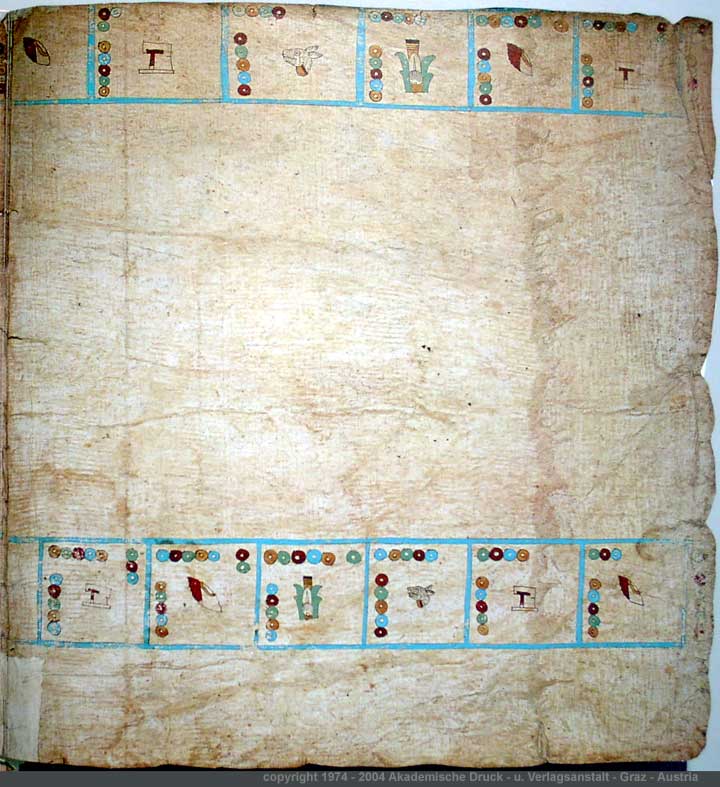 copyright 1974 - 2004 Akademische Druck - u. Verlagsanstalt - Graz - Austria